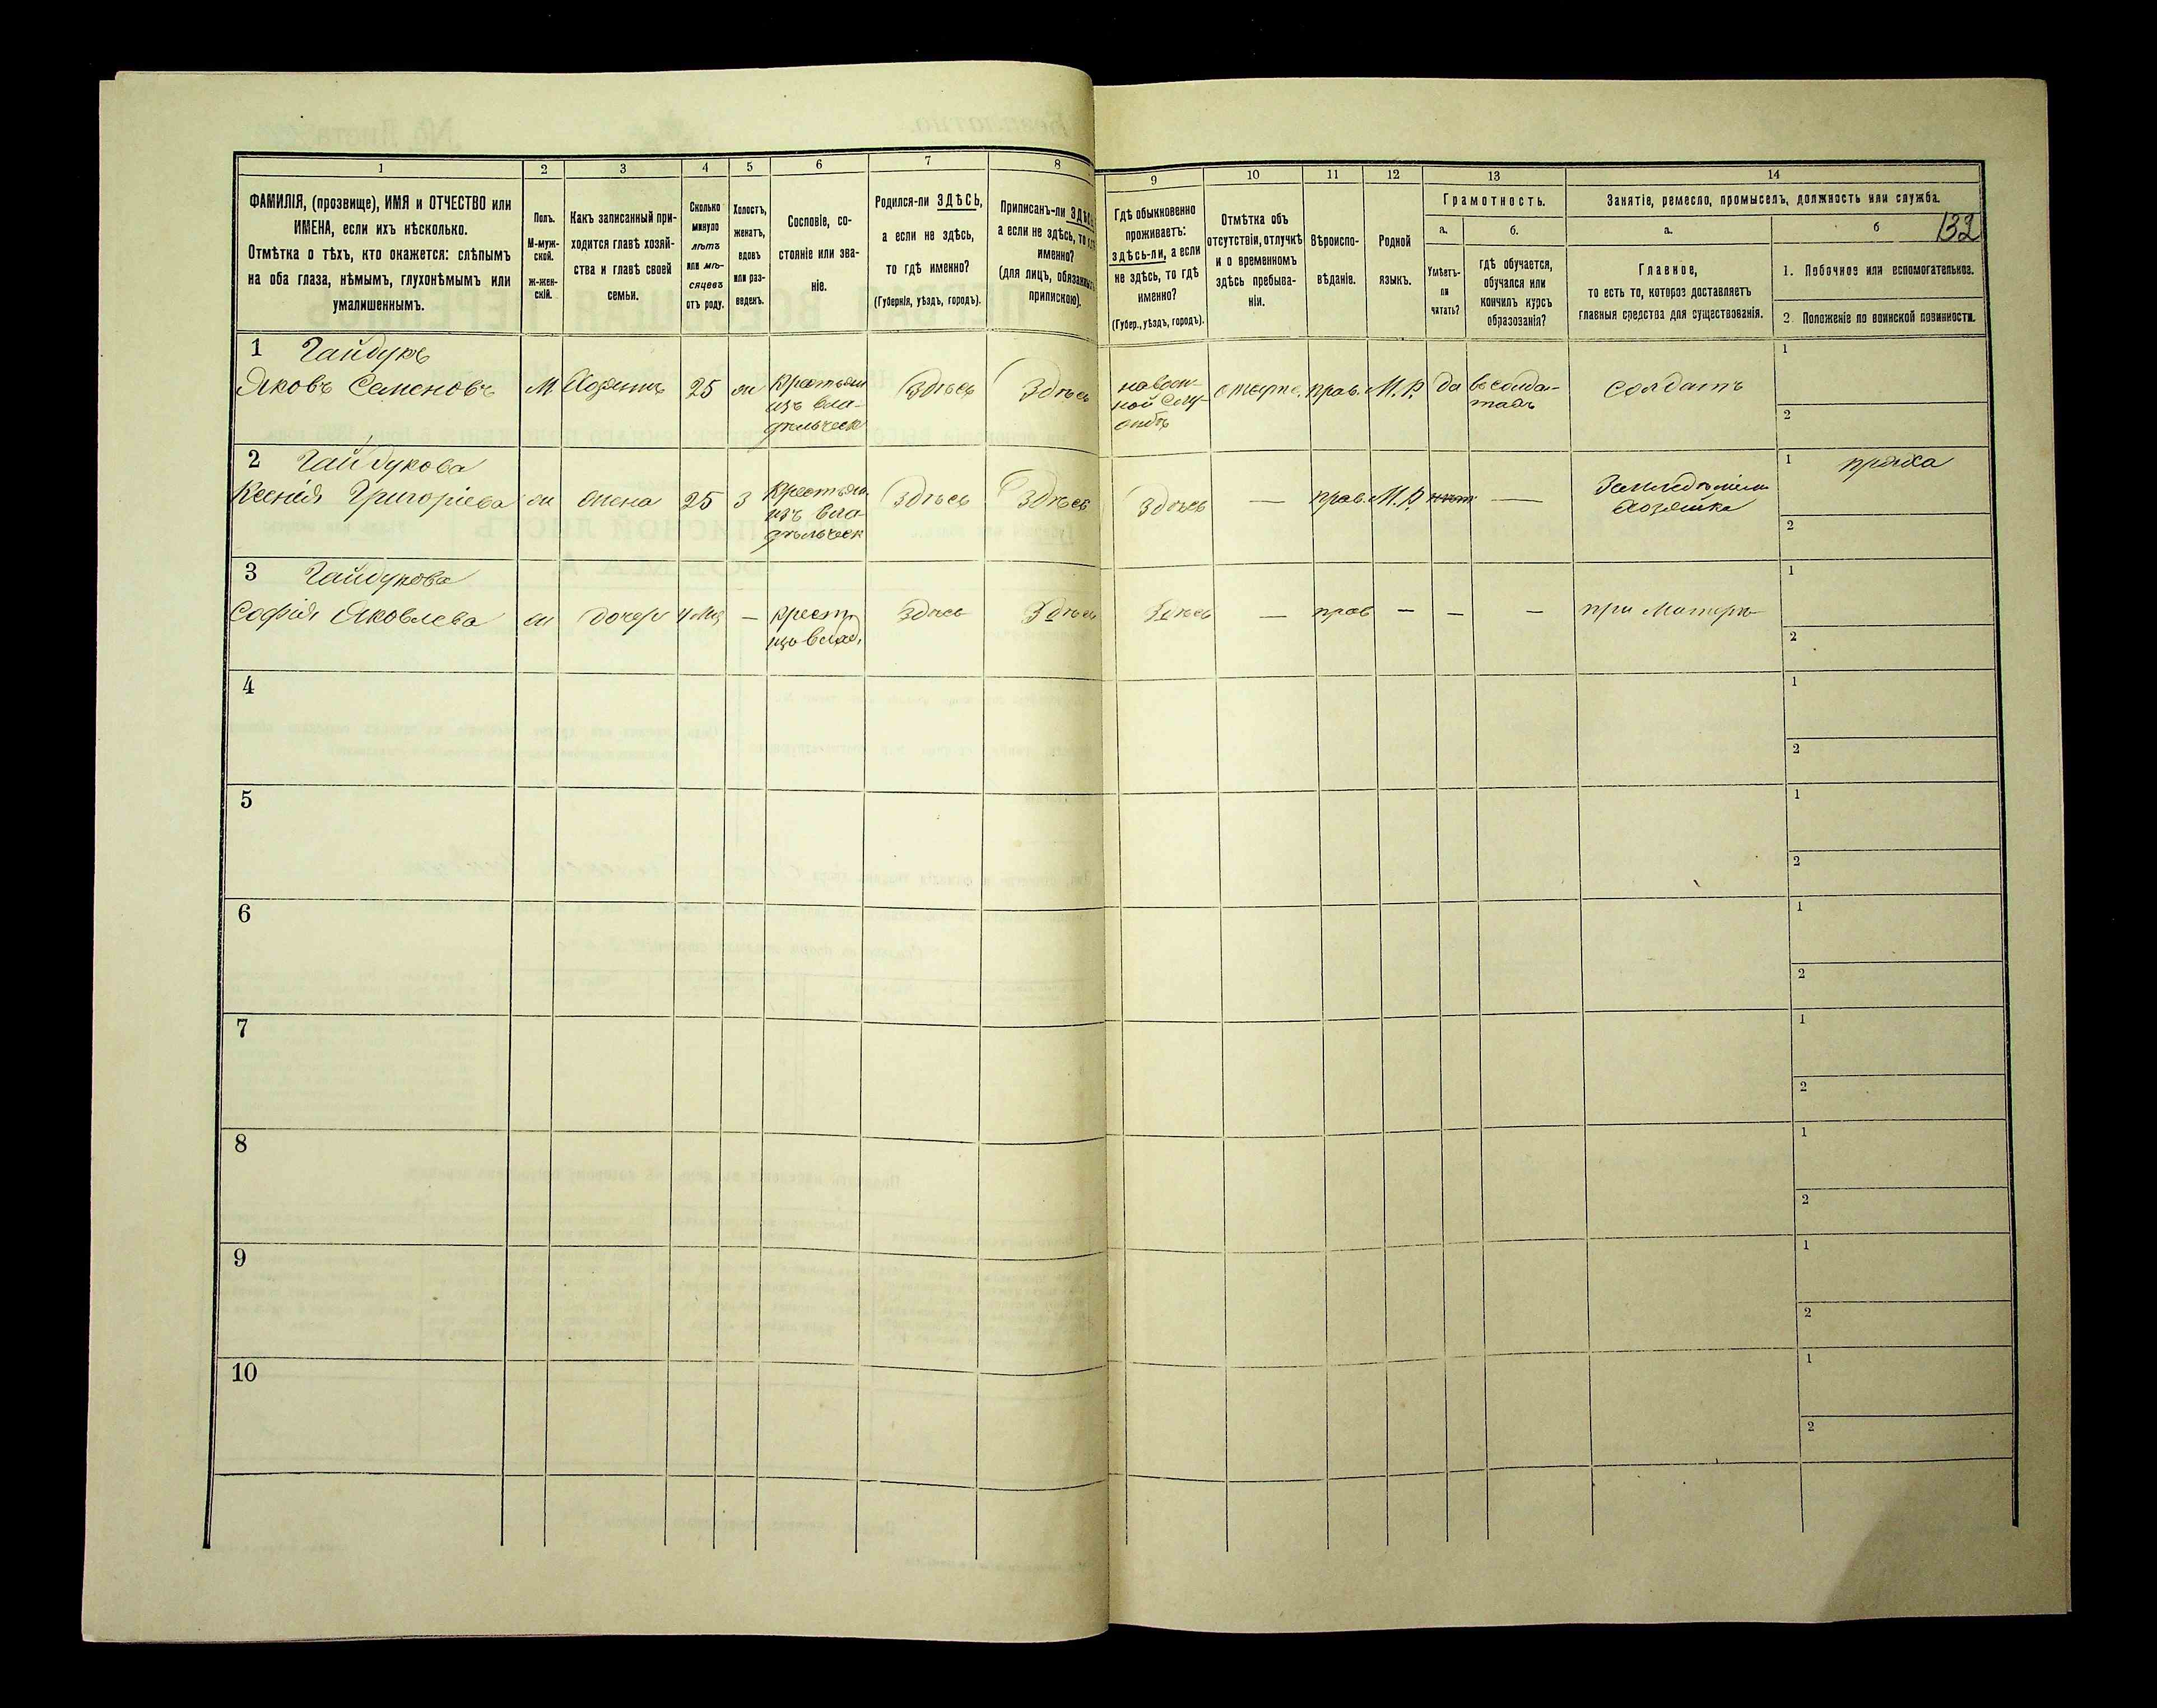 1
2
3
4
5
6
7
8
9
10
11
12
13
14
ФАМИЛІЯ, (прозвище), ИМЯ и ОТЧЕСТВО или
ИМЕНА, если ихъ нѣсколько.
Отмѣтка о тѣхъ, кто окажется: слѣпымъ
на оба глаза, нѣмымъ, глухонѣмымъ или
умалишеннымъ.
Полъ.
М-муж-
ской.
ж-жен-
скій.
Какъ записанный при-
ходится главѣ хозяй-
ства и главѣ своей
семьи.
Сколько
минуло
лѣтъ
или мѣ-
сяцевъ
отъ роду.
Холостъ,
женатъ,
вдовъ
или раз-
веденъ.
Сословіе, со-
стояніе или зва-
ніе.
Родился-ли ЗДѢСЬ,
а если не здѣсь,
то гдѣ именно?
(Губернія, уѣздъ, городъ).
Приписанъ-ли ЗДѢСЬ
а если не здѣсь, то
именно?
(для лицъ, обязанныхъ
припискою).
Гдѣ обыкновенно
проживаетъ:
здѣсь-ли, а если
не здѣсь, то гдѣ
именно?
(Губер., уѣздъ, городъ).
Отмѣтка объ
отсутствіи, отлучкѣ
и о временномъ
здѣсь пребыва-
ніи.
Вѣроиспо-
вѣданіе.
Родной
языкъ.
Грамотность.
а.
б.
Умѣетъ-
ли
читать?
гдѣ обучается,
обучался или
кончилъ курсъ
образованія?
Занятіе, ремесло, промыселъ, должность или служба.
а.
б
132
Главное,
то есть то, которое доставляетъ
главныя средства для существованія.
1. Побочное или вспомогательное.
2. Положеніе по воинской повинности.
1 Гайдукъ
Яковъ Семеновъ
М
Хозяинъ
25
ж
Крестьян
изъ вла-
дѣльческ
Здѣсь
Здѣсь
на воен-
ной слу-
жбѣ
прав.
М.Р.
да
въ солда-
тахъ
солдатъ
1
2
2 Гайдукова
Ксенія Григоріева
ж
жена
25
З
Крестьян
изъ вла
дѣльческ
Здѣсь
Здѣсь
Здѣсь
—
прав.
М.Р.
нѣт
—
Земледѣліе
Хозяйка
1 пряха
2
3 Гайдукова
Софія Яковлева
ж
дочерь
4 мѣс
—
крест
изъ влад.
Здѣсь
Здѣсь
Здѣсь
—
прав
—
—
—
при матери
1
2
4
1
2
5
1
2
6
1
2
7
1
2
8
1
2
9
1
2
10
1
2